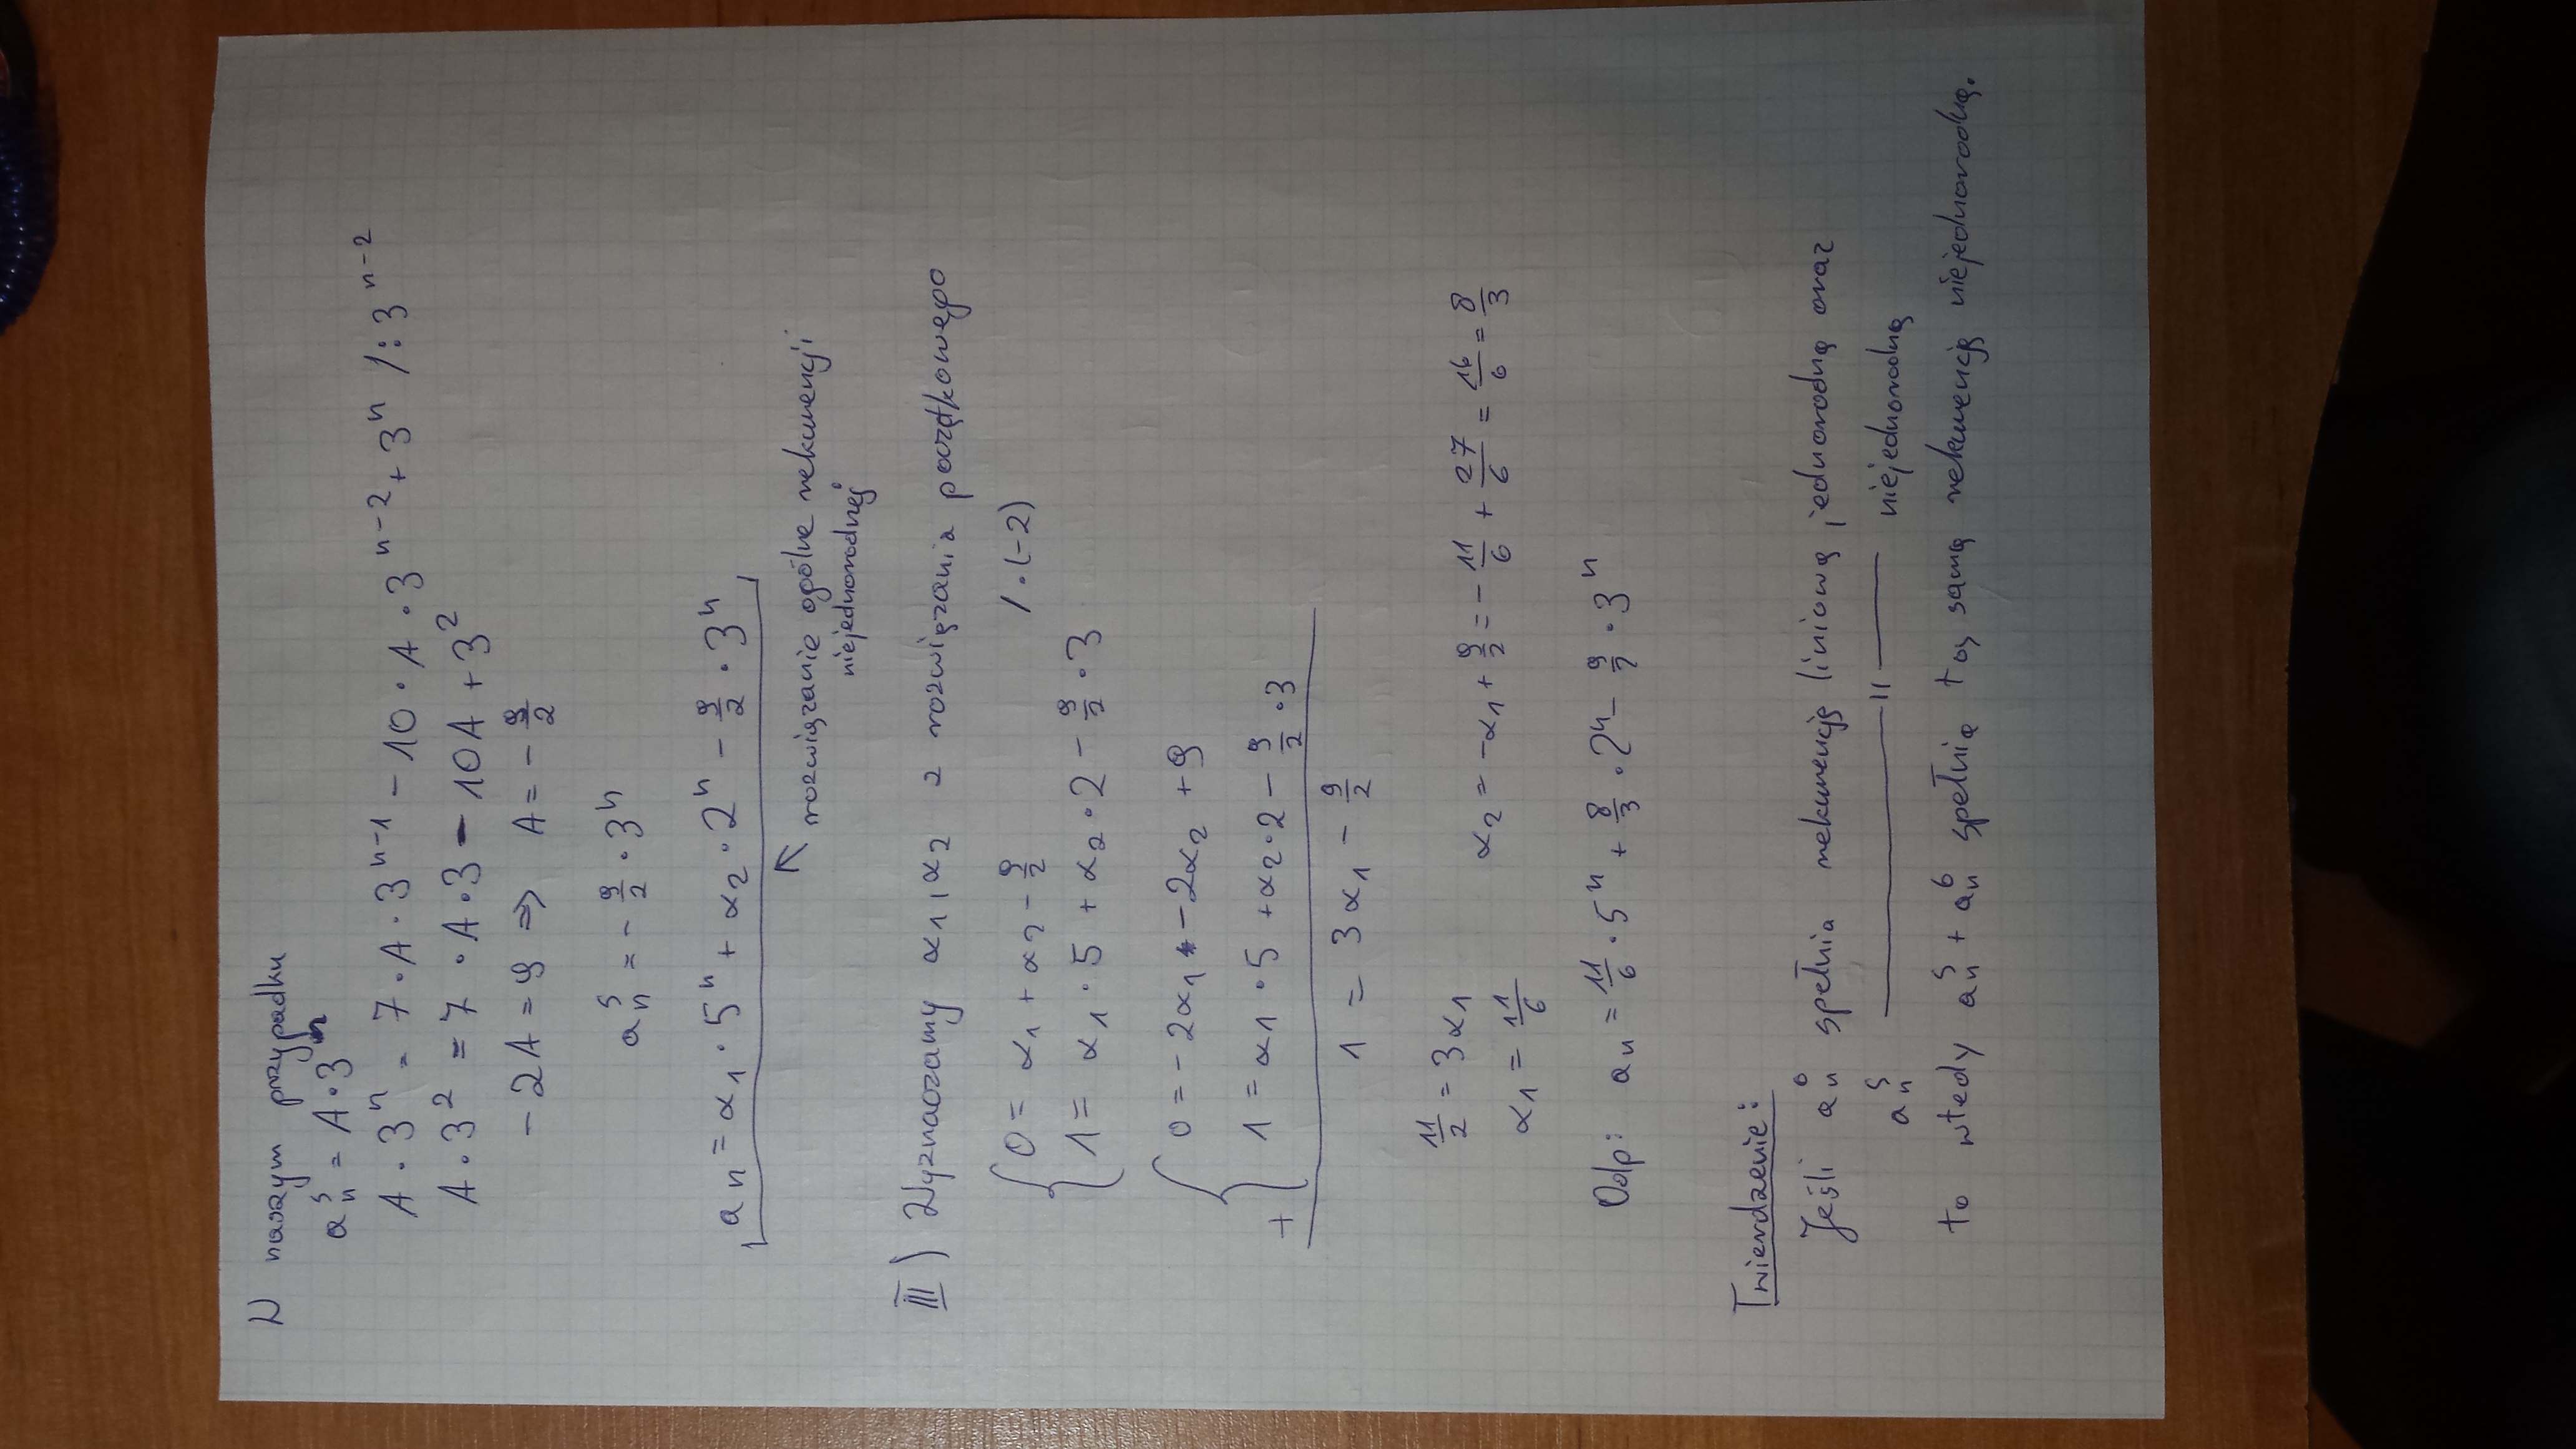 W naszym przypadku
a_n^s = A·3^n
A·3^n = 7·A·3^{n-1} - 10·A·3^{n-2} + 3^n /:3^{n-2}
A·3^2 = 7·A·3 - 10A + 3^2
-2A = 9 => A = -9/2
a_n^s = -9/2·3^n
a_n = α_1·5^n + α_2·2^n - 9/2·3^n
↖ rozwiązanie ogólne rekurencji
niejednorodnej
III) Wyznaczamy α_1, α_2 z rozwiązania początkowego
0 = α_1 + α_2 - 9/2 /·(-2)
1 = α_1·5 + α_2·2 - 9/2·3
0 = -2α_1 -2α_2 + 9
+ 1 = α_1·5 + α_2·2 - 9/2·3
1 = 3α_1 - 9/2
11/2 = 3α_1
α_1 = 11/6
α_2 = -α_1 + 9/2 = -11/6 + 27/6 = 16/6 = 8/3
Odp: a_n = 11/6·5^n + 8/3·2^n - 9/2·3^n
Twierdzenie:
Jeśli a_n^o spełnia rekurencję liniową jednorodną oraz
a_n^s —— 〃 —— niejednorodną
to wtedy a_n^s + a_n^o spełnia tą samą rekurencję niejednorodną.